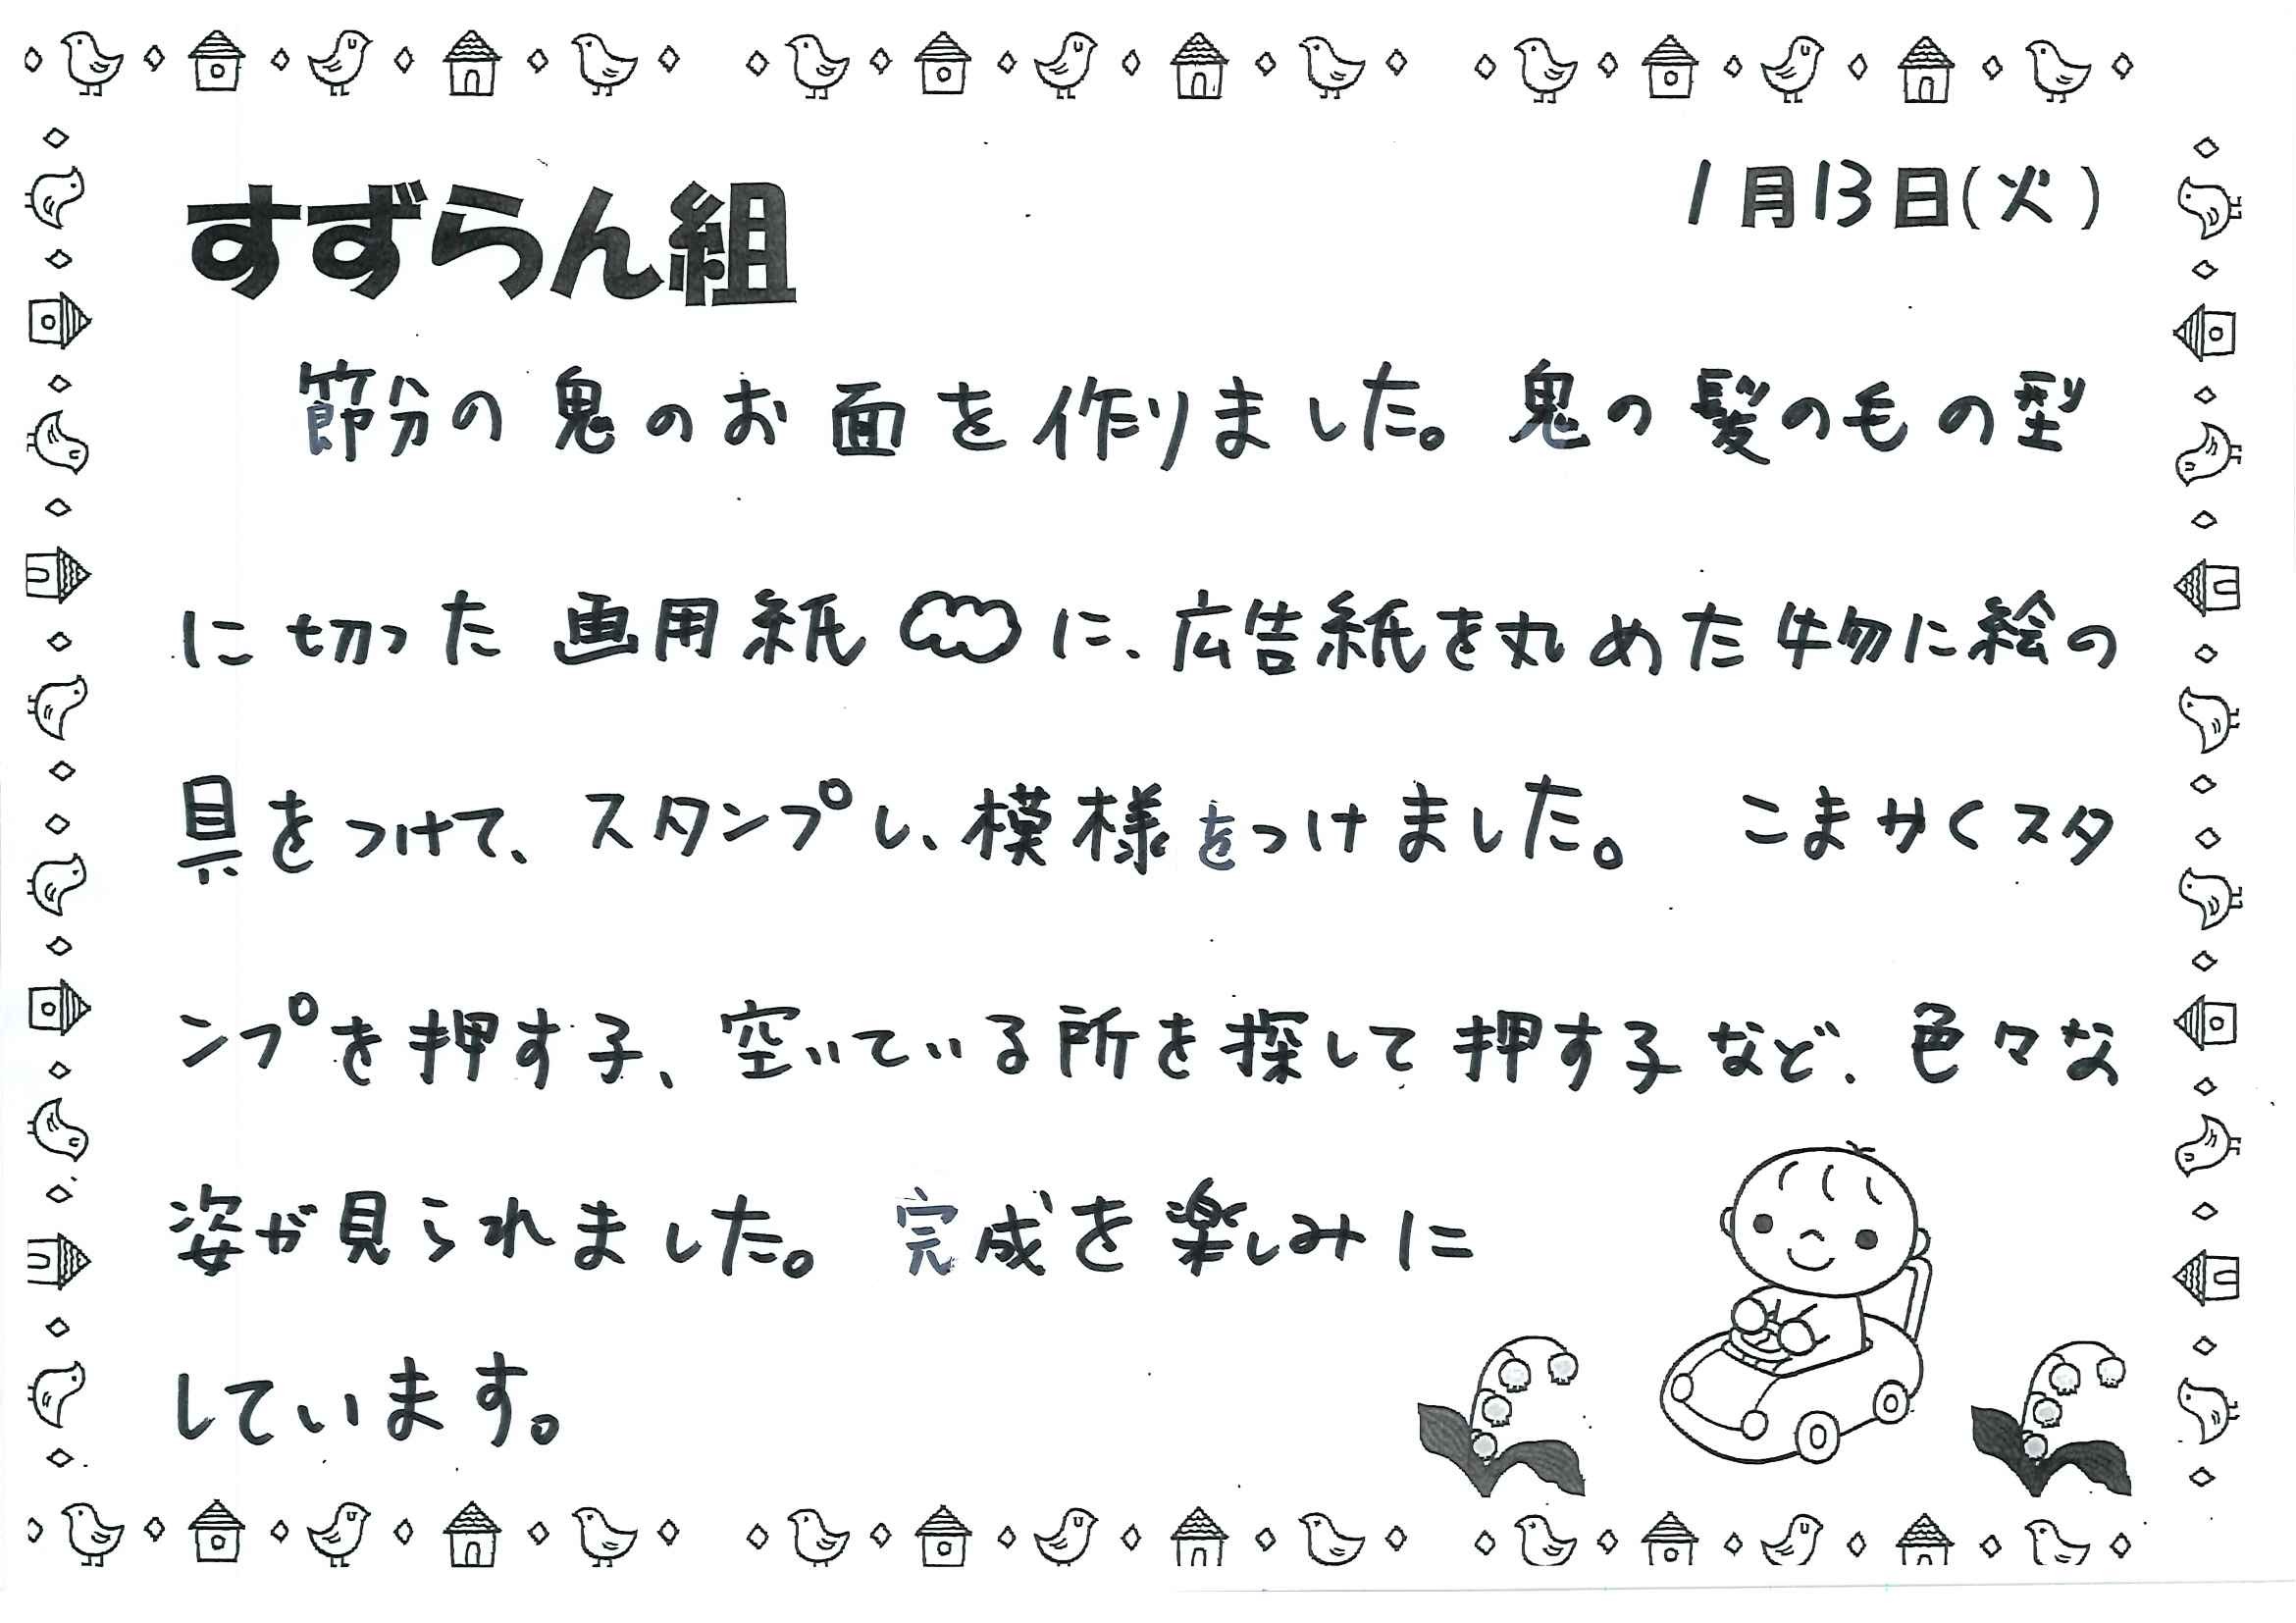 すずらん組
1月13日(火)
節分の鬼のお面を作りました。鬼の髪の毛の型
に切った画用紙に、広告紙を丸めた物に絵の
具をつけて、スタンプし、模様をつけました。こまかくスタ
ンプを押す子、空いている所を探して押す子など、色々な
姿が見られました。完成を楽しみに
しています。